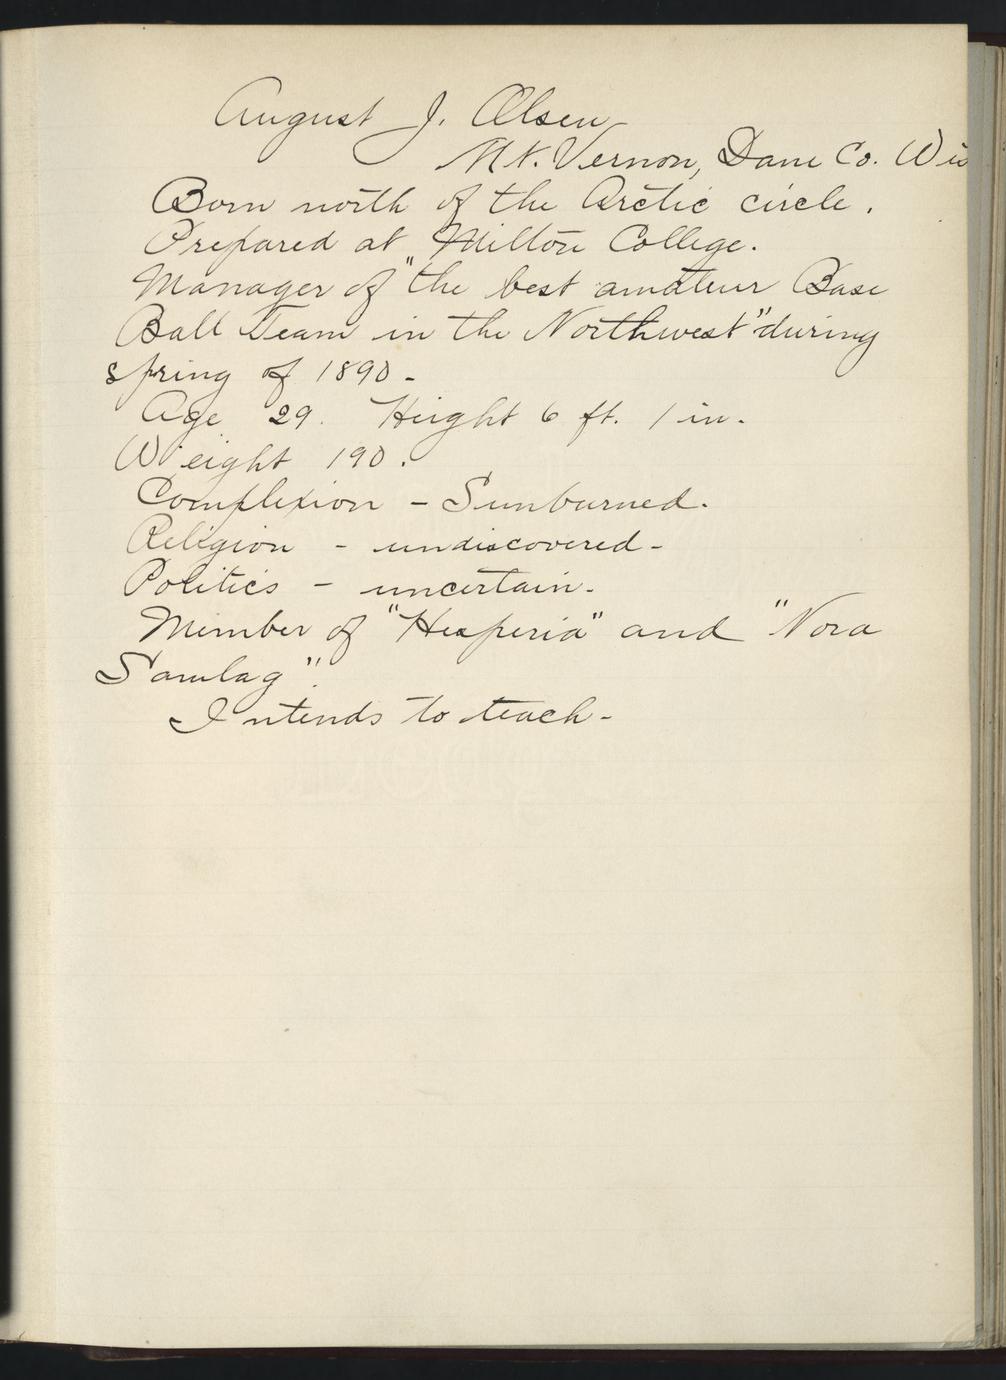 August J. Olsen
Mt. Vernon, Dane Co. Wis
Born north of the Arctic circle.
Prepared at Milton College.
Manager of "the best amateur Base
Ball Team in the Northwest" during
spring of 1890 -
Age 29. Height 6 ft. 1 in.
Weight 190.
Complexion - Sunburned.
Religion - undiscovered -
Politics - uncertain -
Member of "Hesperia" and "Nora
Samlag".
Intends to teach -